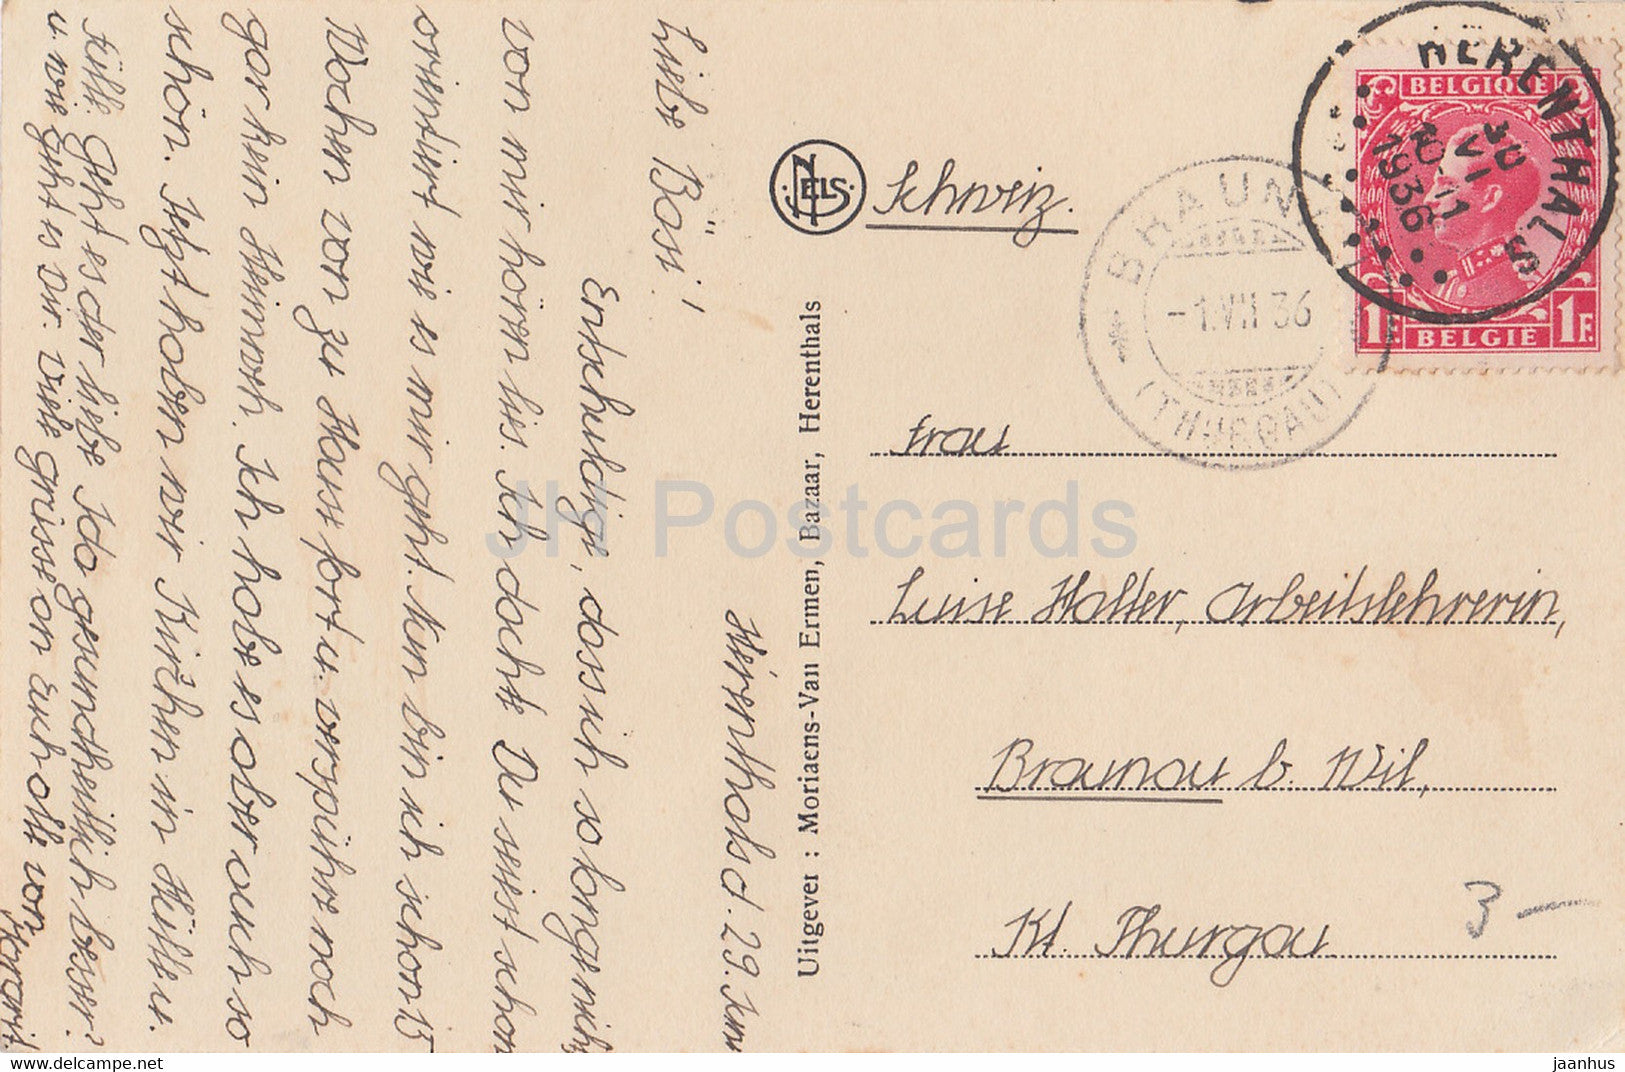 Herenthals d. 29. Juni
Liebe Bäsi!
Entschuldige, dass ich so lange nichts
von mir hören lies. Ich dachte Du seist schon
orientiert wie es mir geht. Nun bin ich schon 13
Wochen von zu Hause fort u. verspühre noch
gar kein Heimweh. Ich habe es aber auch so
schön. Jetzt haben wir Kirchen in Hülle u.
Fülle. Geht es der liebe Ida gesundheitlich besser?
u. wie geht es Dir. Viele grüsse an Euch alle von
Uitgever : Moriaens-Van Ermen, Bazaar, Herenthals
NELS
Schweiz.
BRAUNAU
-1.VII.36
(THURGAU)
HERENTHALS
30
VI
10-11
1936
BELGIQUE
1F. BELGIE 1F.
Frau
Luise Halter, Arbeitslehrerin,
Braunau b. Wil,
Kt. Thurgau.
3 –
JH Postcards
www.delcampe.net
jaanhus